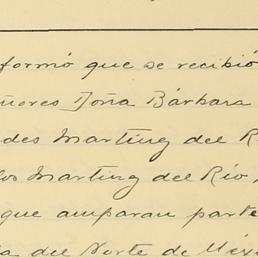 formó que se recibió
ñores Doña Bárbara
des Martínez del R
los Martínez del Río,
que amparan parte
del Norte de Méxi